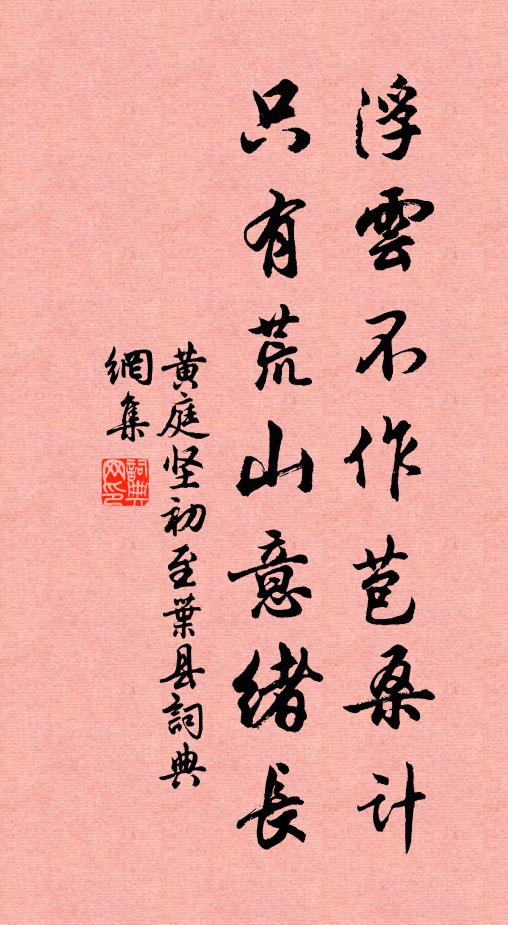 浮雲不作苞桑計
只有荒山意緒長
黄庭坚初至葉县詞典
網集
詞典
网印